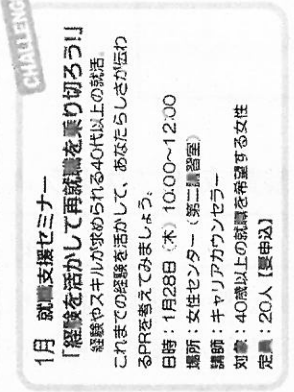 CHALLENG
1月 就職支援セミナー
「経験を活かして再就職を乗り切ろう!」
経験やスキルが求められる40代以上の就活。
これまでの経験を活かして、あなたらしさが伝わ
るPRを考えてみましょう。
日時:1月28日(木) 10:00~12:00
場所:女性センター(第二講習室)
講師:キャリアカウンセラー
対象:40歳以上の就職を希望する女性
定員:20人【要申込】